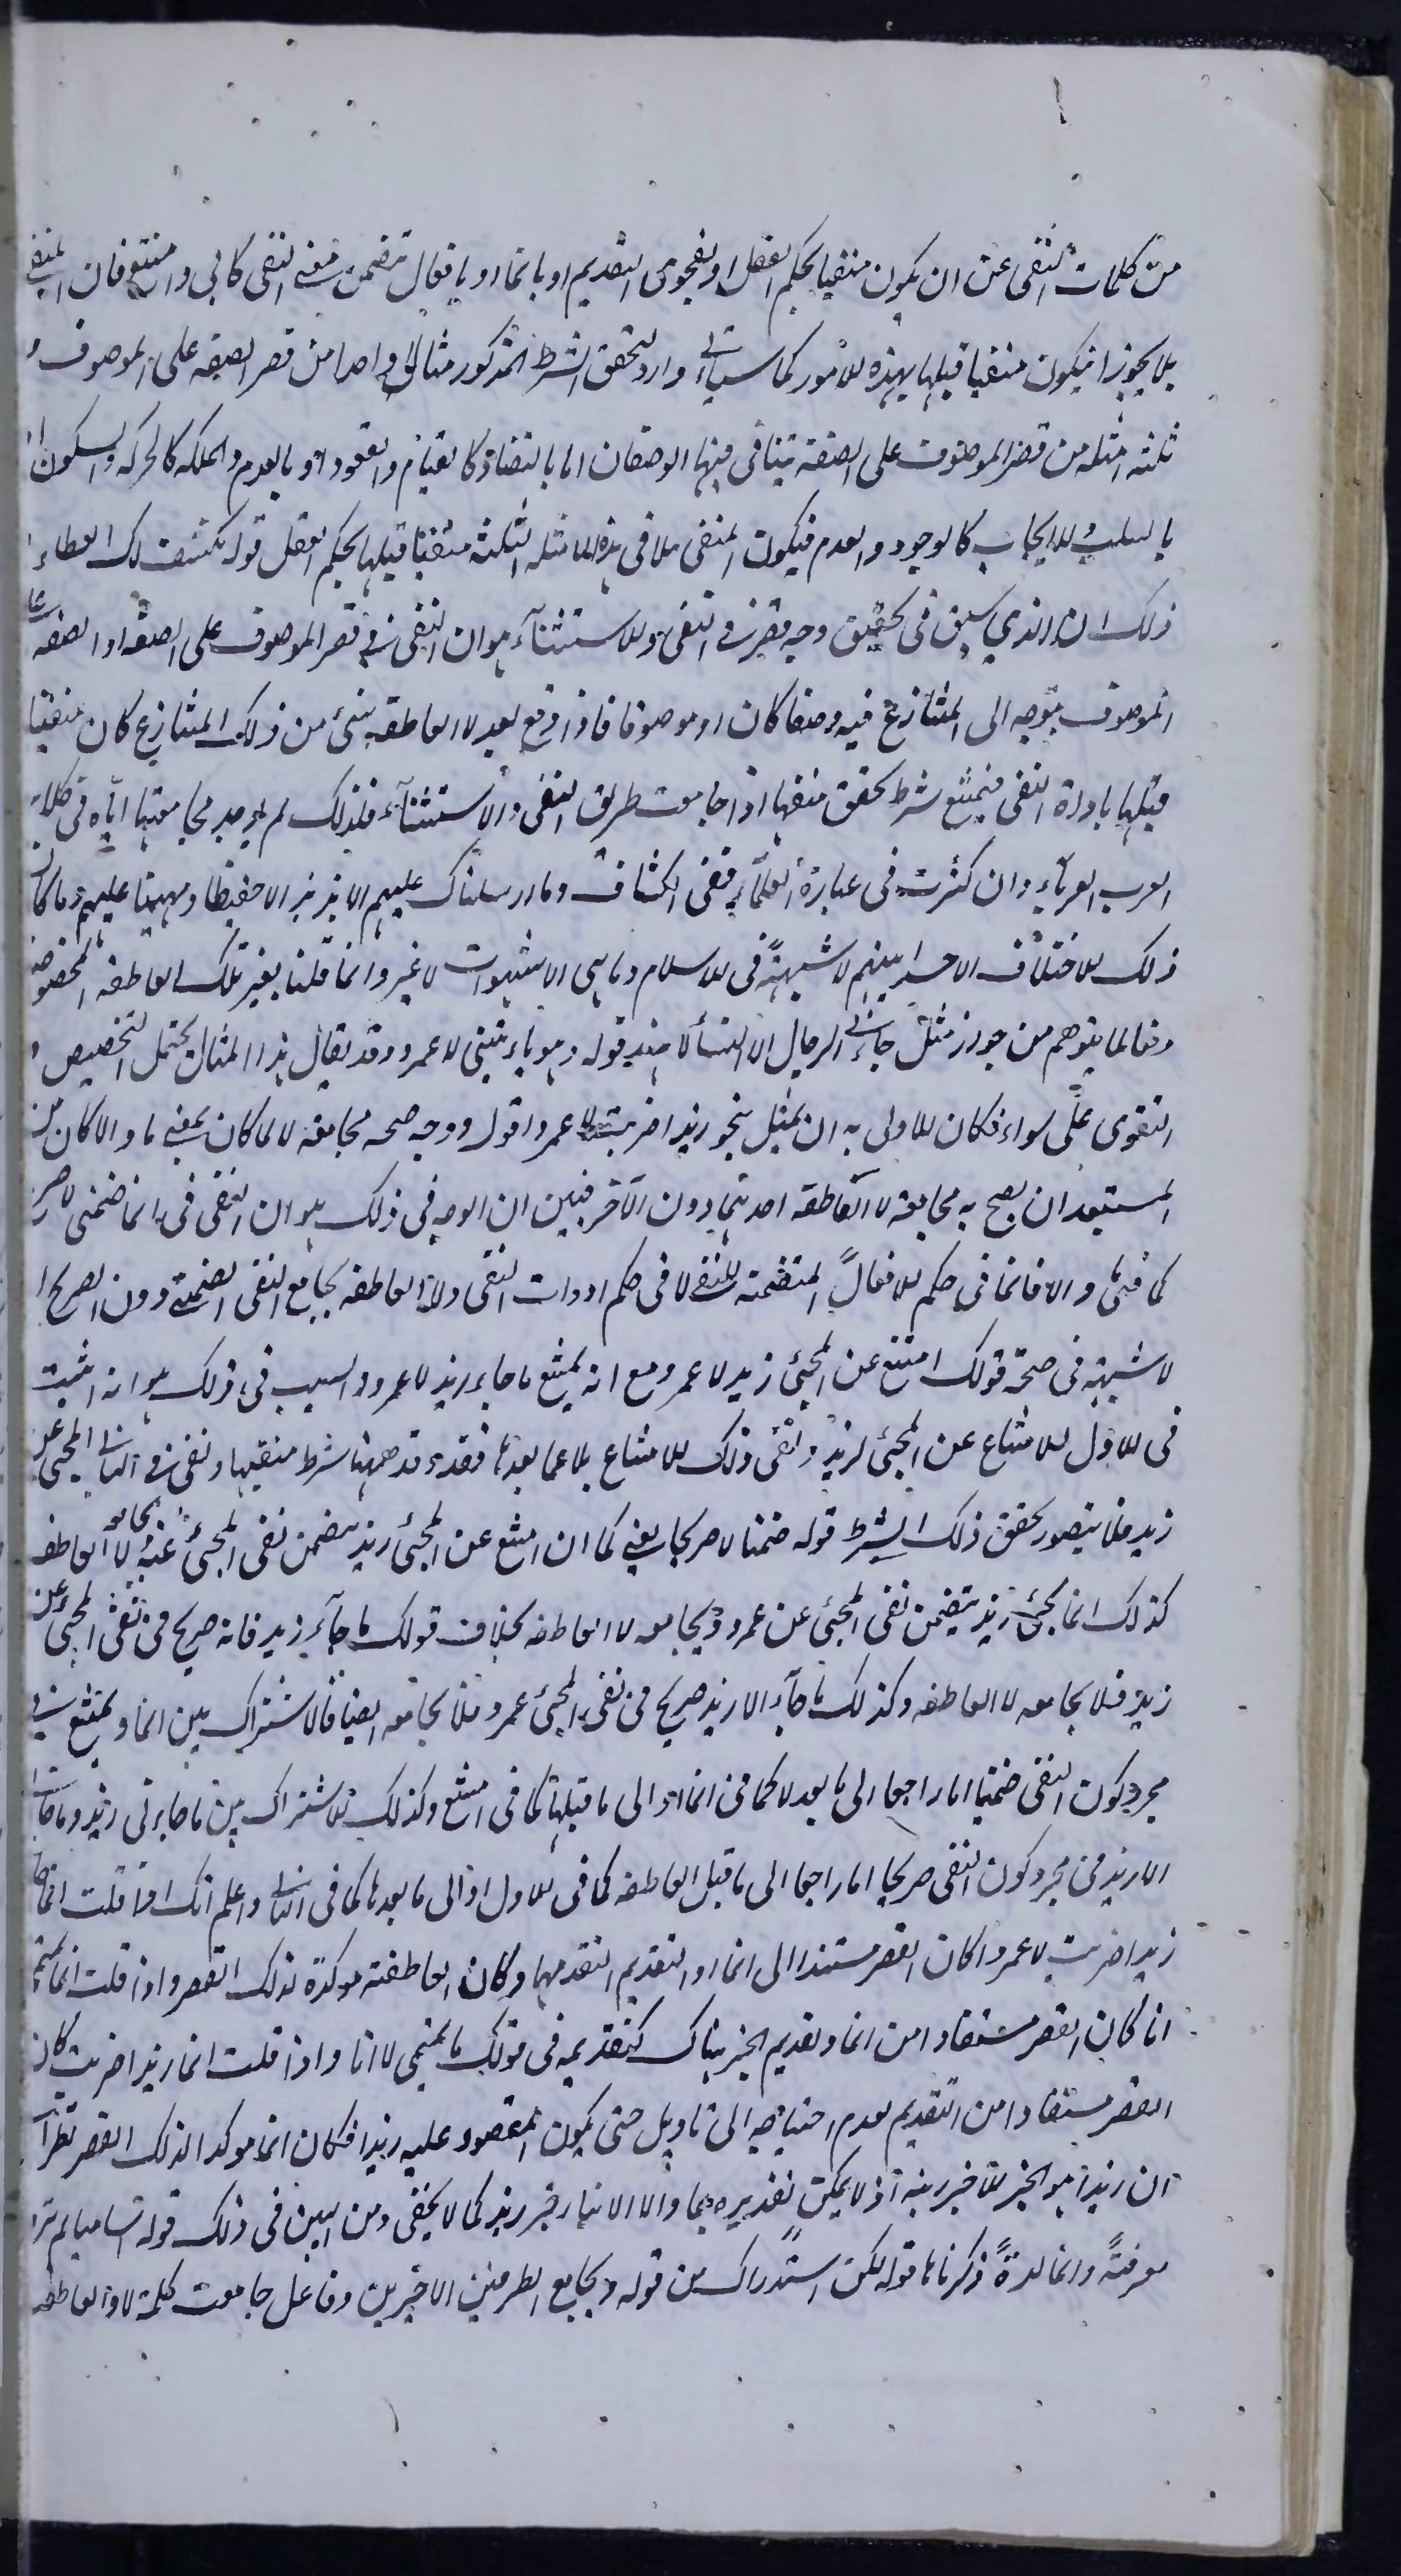 من كلمات النفى عن ان يكون منفيا بحكم العقل او بفحوى التقديم او بانما او بافعال تتضمن معنى النفى كابى وامتنع فان المنفى
بلا يجوز ان يكون منفيا قبلها بهذه الامور كما سيأتى واورد لتحقق الشرط المذكور مثالا واحدا من قصر الصفه على الموصوف و
ثلثه امثله من قصر الموصوف على الصفة يتنافى فيها الوصفان اما بالتضاد كالقيام والقعود او بالعدم والملكه كالحركه والسكون او
بالسلب والايجاب كالوجود والعدم فيكون المنفى بلا فى هذه الامثله الثلثة منفيا قبلها بحكم العقل قوله يكشف لك الغطاء
ذلك ان الذي سبق فى تحقيق وجه قصر فى النفى والاستثنآء هو ان النفى فى قصر الموصوف على الصفه او الصفه على
الموصوف يتوجه الى المتنازع فيه وصفا كان او موصوفا فاذا وقع بعد لا العاطفه شئ من ذلك المتنازع كان منفيا
قبلها باداة النفى فيمتنع شرط تحقق منفيها اذا جامعت طريق النفى والاستثنآء فلذلك لم يوجد مجامعتها اياه فى كلام
العرب العربآء وان كثرت فى عبارة العلمآء ففى الكشاف وما ارسلناك عليهم الا نذيرا لا حفيظا ومهيمنا عليهم وما كان
ذلك الاختلاف الا حسدا بينهم لا شبهةً فى الاسلام وما هى الا شهوات لا غير وانما قلنا بغير تلك العاطفه المخصوصه
دفعا لما يتوهم من جواز مثل جاءنى الرجال الا النسأ لا هند قوله وهو يأتينى لا عمرو وقد يقال هذا المثال يحتمل التخصيص و
التقوى على سواء فكان الاولى به ان يمثل بنحو زيدا ضربت لا عمرا واقول ووجه صحه مجامعه لا لما كان بمعنى ما والا كان من
المستبعد ان يصح به مجامعة لا العاطفة احدهما دون الآخر فبين ان الوجه فى ذلك هو ان النفى فى انما ضمنى لا صريح
كما فى ما والا فانما فى حكم الافعال المتضمنه للنفى لا فى حكم ادوات النفى ولا العاطفه يجامع النفى الضمنى دون الصريح اذ
لا شبهة فى صحة قولك امتنع عن المجئ زيد لا عمرو مع انه يمتنع ما جاء زيد لا عمرو والسبب فى ذلك هو انه اثبت
فى الاول الامتناع عن المجئ لزيد ونفى ذلك الامتناع بلا عما بعدها فقد وجد ههنا شرط منفيها ونفى فى الثانى المجئ عن
زيد فلا يتصور تحقق ذلك الشرط قوله ضمنا لا صريحا يعنى كما ان امتنع عن المجئ زيد يتضمن نفى المجئ عنه يجامعه لا العاطفه
كذلك انما يجئ زيد يتضمن نفى المجئ عن عمرو ويجامعه لا العاطفه بخلاف قولك ما جآء زيد فانه صريح فى نفى المجئ عن
زيد فلا يجامعه لا العاطفه وكذلك ما جآء الا زيد صريح فى نفى المجئ عمرو فلا يجامعه ايضا فالاشتراك بين انما ويمتنع فى
مجرد كون النفى ضمنيا اما راجعا الى ما بعد لا كما فى انما او الى ما قبلها كما فى امتنع وكذلك الاشتراك بين ما جاءنى زيد وما جاءنى
الا زيد فى مجرد كون النفى صريحا اما راجعا الى ما قبل العاطفه كما فى الاول او الى ما بعدها كما فى الثانى واعلم انك اذا قلت انما
زيدا ضربت لا عمرا كان القصر مستندا الى انما او التقديم التقدمهما وكان العاطفة موكدة لذلك القصر واذا قلت انما تميمى
انا كان القصر مستفادا من انما وتقديم الخبر هناك كتقديمه فى قولك ما تميمى الا انا واذا قلت انما زيدا ضربت كان
القصر مستفادا من التقديم لعدم احتياجه الى تاويل حتى يكون المقصود عليه زيدا فكان انما موكدا لذلك القصر نظرا الى
ان زيدا هو الجزء الاخير منه اذ لا يمكن تقديره بما والا الا بتاخير زيد كما لا يخفى ومن البين فى ذلك قوله
معرفتةً وانما لدةً ذكرناها قوله لكن استدراك من قوله ويجامع الطرفين الاخيرين وفاعل جامعت كلمة لا والعاطفه